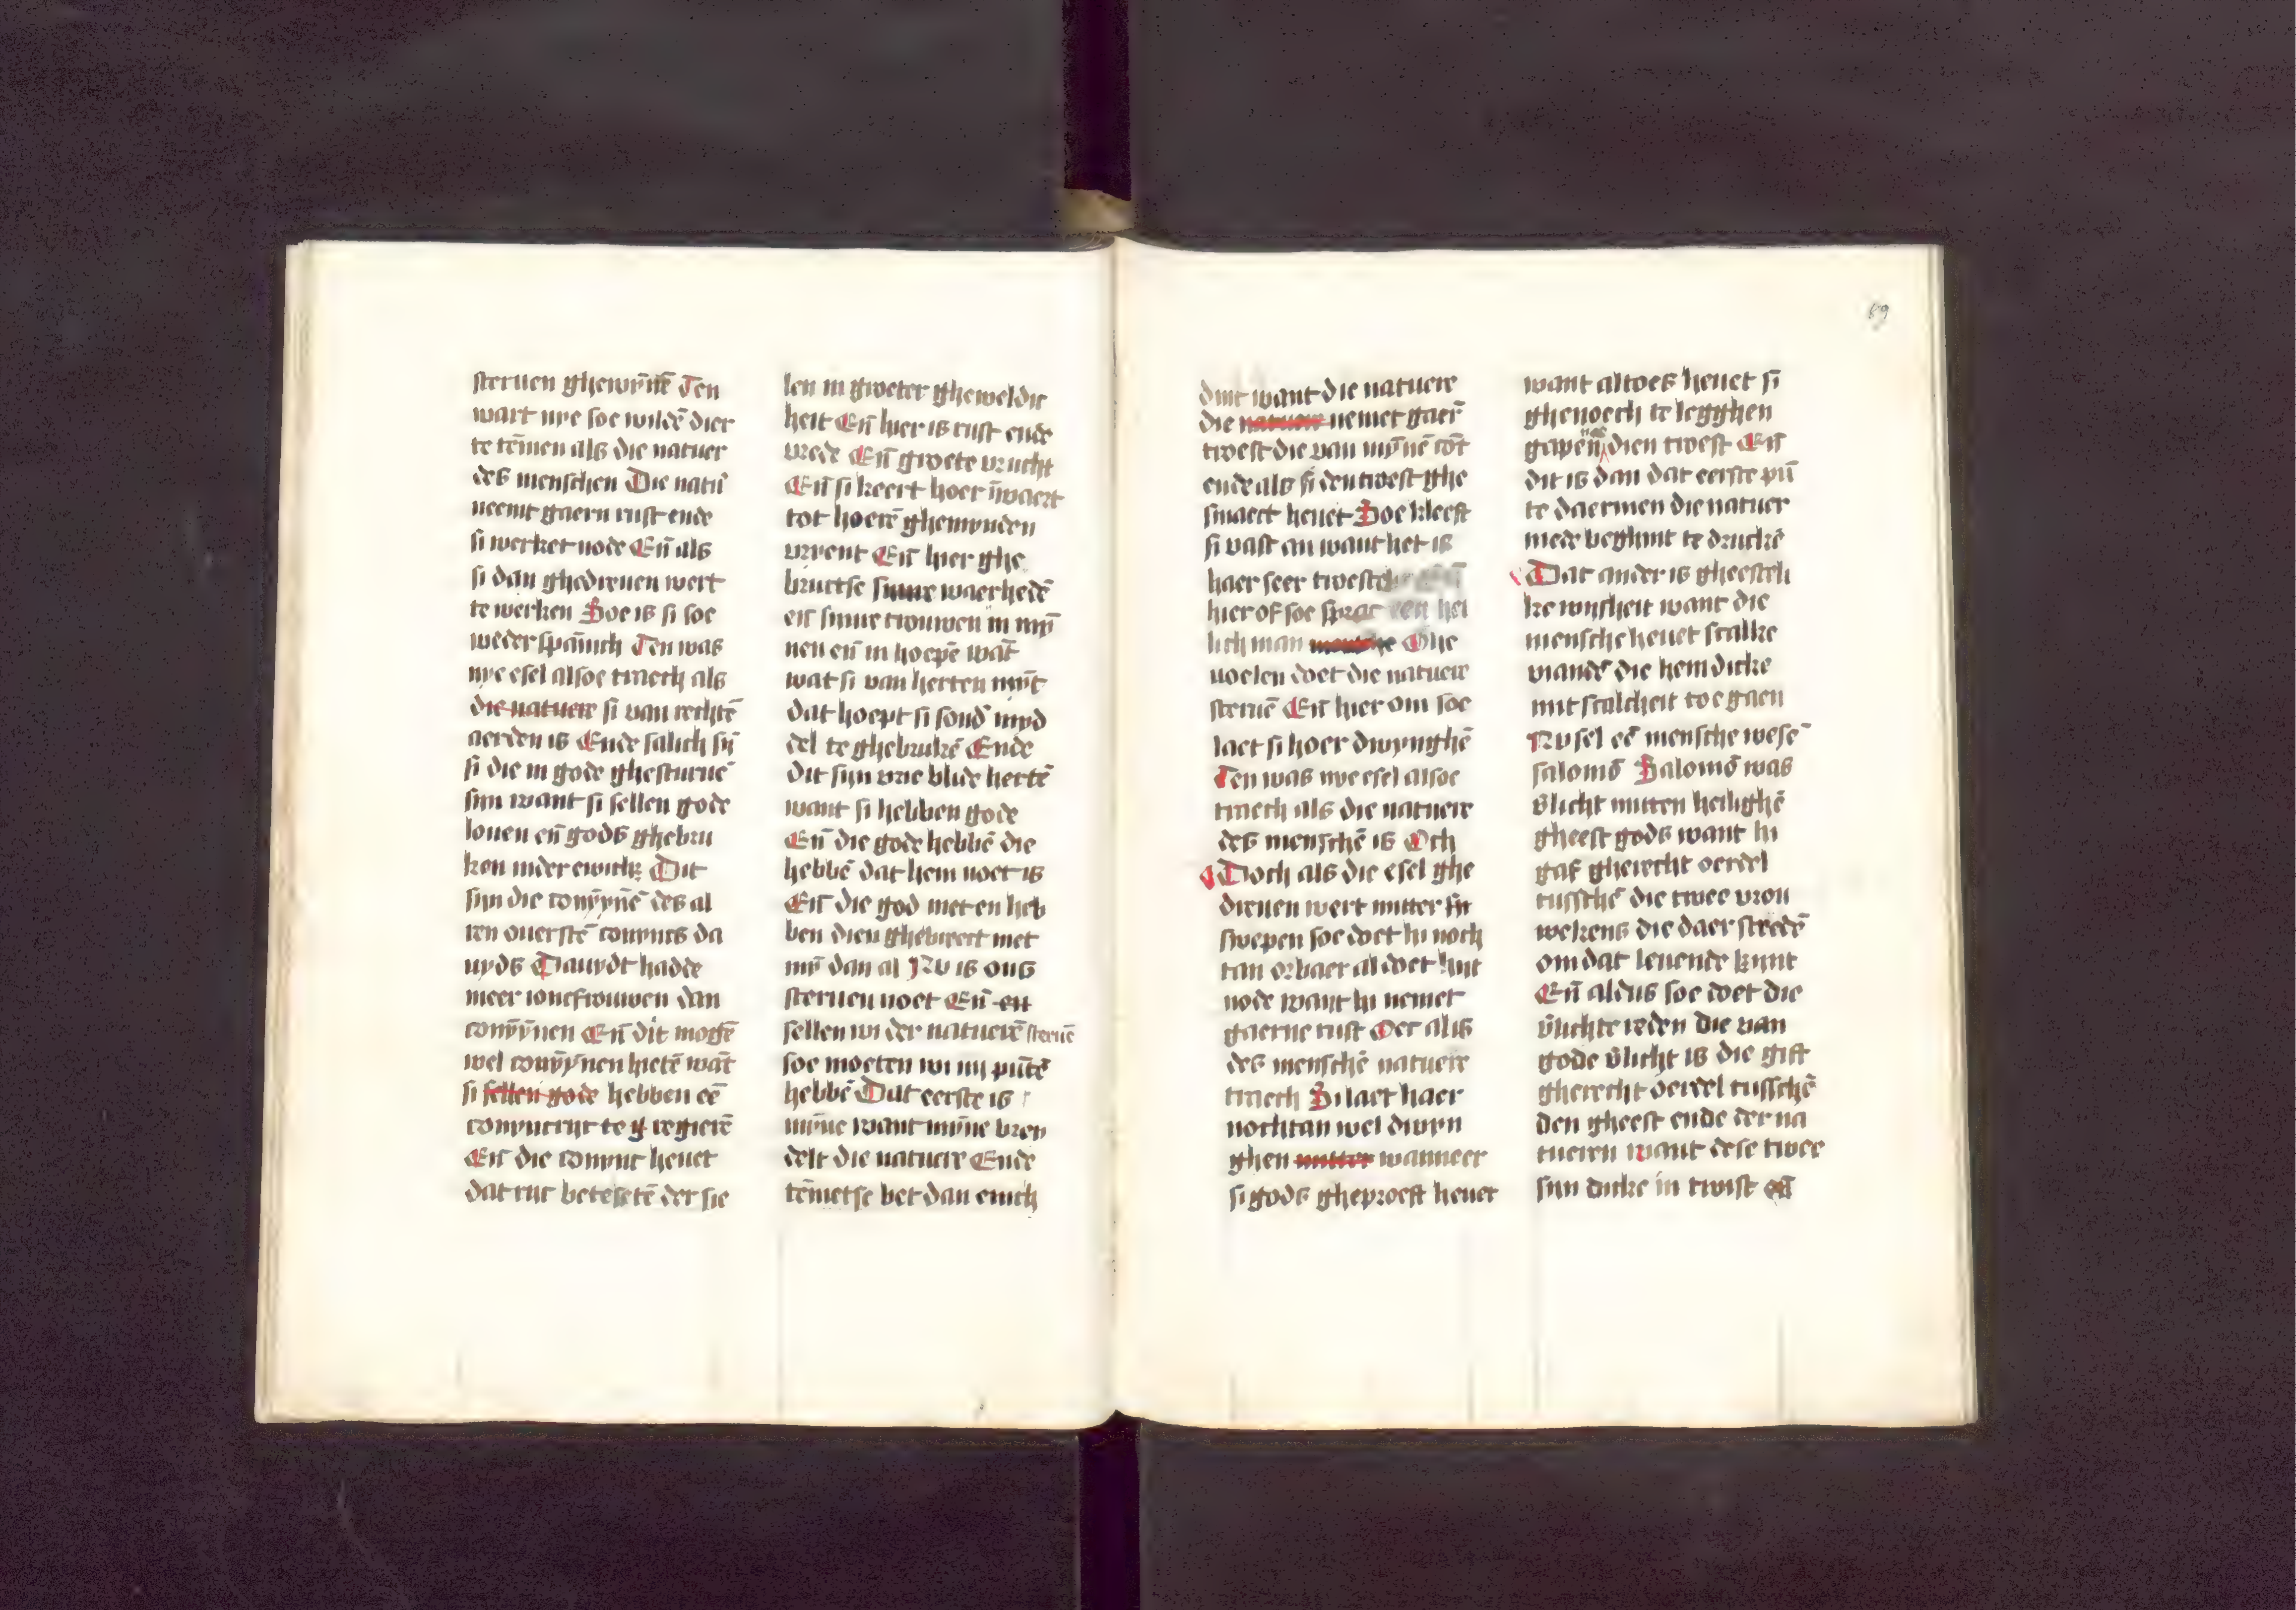 steruen ghewȳnē Ten
wart nye soe wildē dier
te tēmen als die natuer
des menschen Die natū
neemt gaern rust ende
si werket node Eñ als
si dan ghedreuen wert
te werken Soe is si soe
weder spānich Ten was
nye esel alsoe traech als
die natuere si van rechtē
aerden is Ende salich sȳ
si die in gode ghesturuē
sijn want si sellen gode
louen eñ gods ghebru
ken inder ewich Dit
sijn die conȳynē des al
ren ouerstē conyncs da
uyds Dauydt hadde
meer ioncfrouwen dan
conȳynen Eñ dit mogē
wel conȳynen hietē wāt
si sellen gode hebben eē
conyncrijc te regierē
Eñ die conync heuet
dat rijc besetē der sie
len in groeter gheweldic
heit Eñ hier is rust ende
vrede Eñ groete vrucht
Eñ si keert hoer īwaert
tot hoerē ghemynden
vryent Eñ hier ghe
bructse sijnre waerhedē
eñ sijnre trouwen in mȳ
nen eñ in hoepē wāt
wat si van herten mȳt
dat hoept si sond' myd
del te ghebrukē Ende
dit sijn vrie blide hertē
want si hebben gode
Eñ die gode hebbē die
hebbē dat hem noet is
Eñ die god niet en heb
ben dien ghebreect niet
mȳ dan al Nv is ons
steruen noet Eñ en
sellen wi der natuerē steruē
soe moeten wi iiij pūtē
hebbē Dat eerste is
mȳne want mȳne bren
delt die natuere Ende
tēmetse bet dan enich
dinc want die natuere
die natuer nemet gaer̄
troest die van mȳnē cōt
ende als si den troest ghe
smaect heuet Soe kleeft
si vast an want het is
haer seer troest
hier of soe sprac een hei
lich man Ghe
uoelen doet die natuere
steruē Eñ hier om soe
laet si hoer dwynghē
Ten was nye esel alsoe
traech als die natuere
des menschē is Och
Doch als die esel ghe
dreuen wert mitter
swepen soe doet hi noch
tan orbaer al doet hijt
node want hi nemet
gaerne rust Oec al is
des menschē natuere
traech Si laet haer
nochtan wel dwyn
ghen mitter wanneer
si gods gheproeft heuet
want altoes heuet si
ghenoech te legghen
gapen na dien troest Eñ
dit is dan dat eerste pū
te daermen die natuer
mede beghint te druckē
Dat ander is gheesteli
ke wijsheit want die
mensche heuet scalke
viandē die hem dicke
mit scalcheit toe gaen
Nv sel eē mensche wesē
salomō Salomō was
v̄licht mitten heilighē
gheest gods want hi
gaf gherecht oerdel
tusschē die twee vrou
wekens die daer stredē
om dat leuende kijnt
Eñ aldus soe doet die
v̄lichte reden die van
gode v̄licht is die gift
gherecht oerdel tusschē
den gheest ende der na
tueren want dese twee
sijn dicke in twist eñ
69